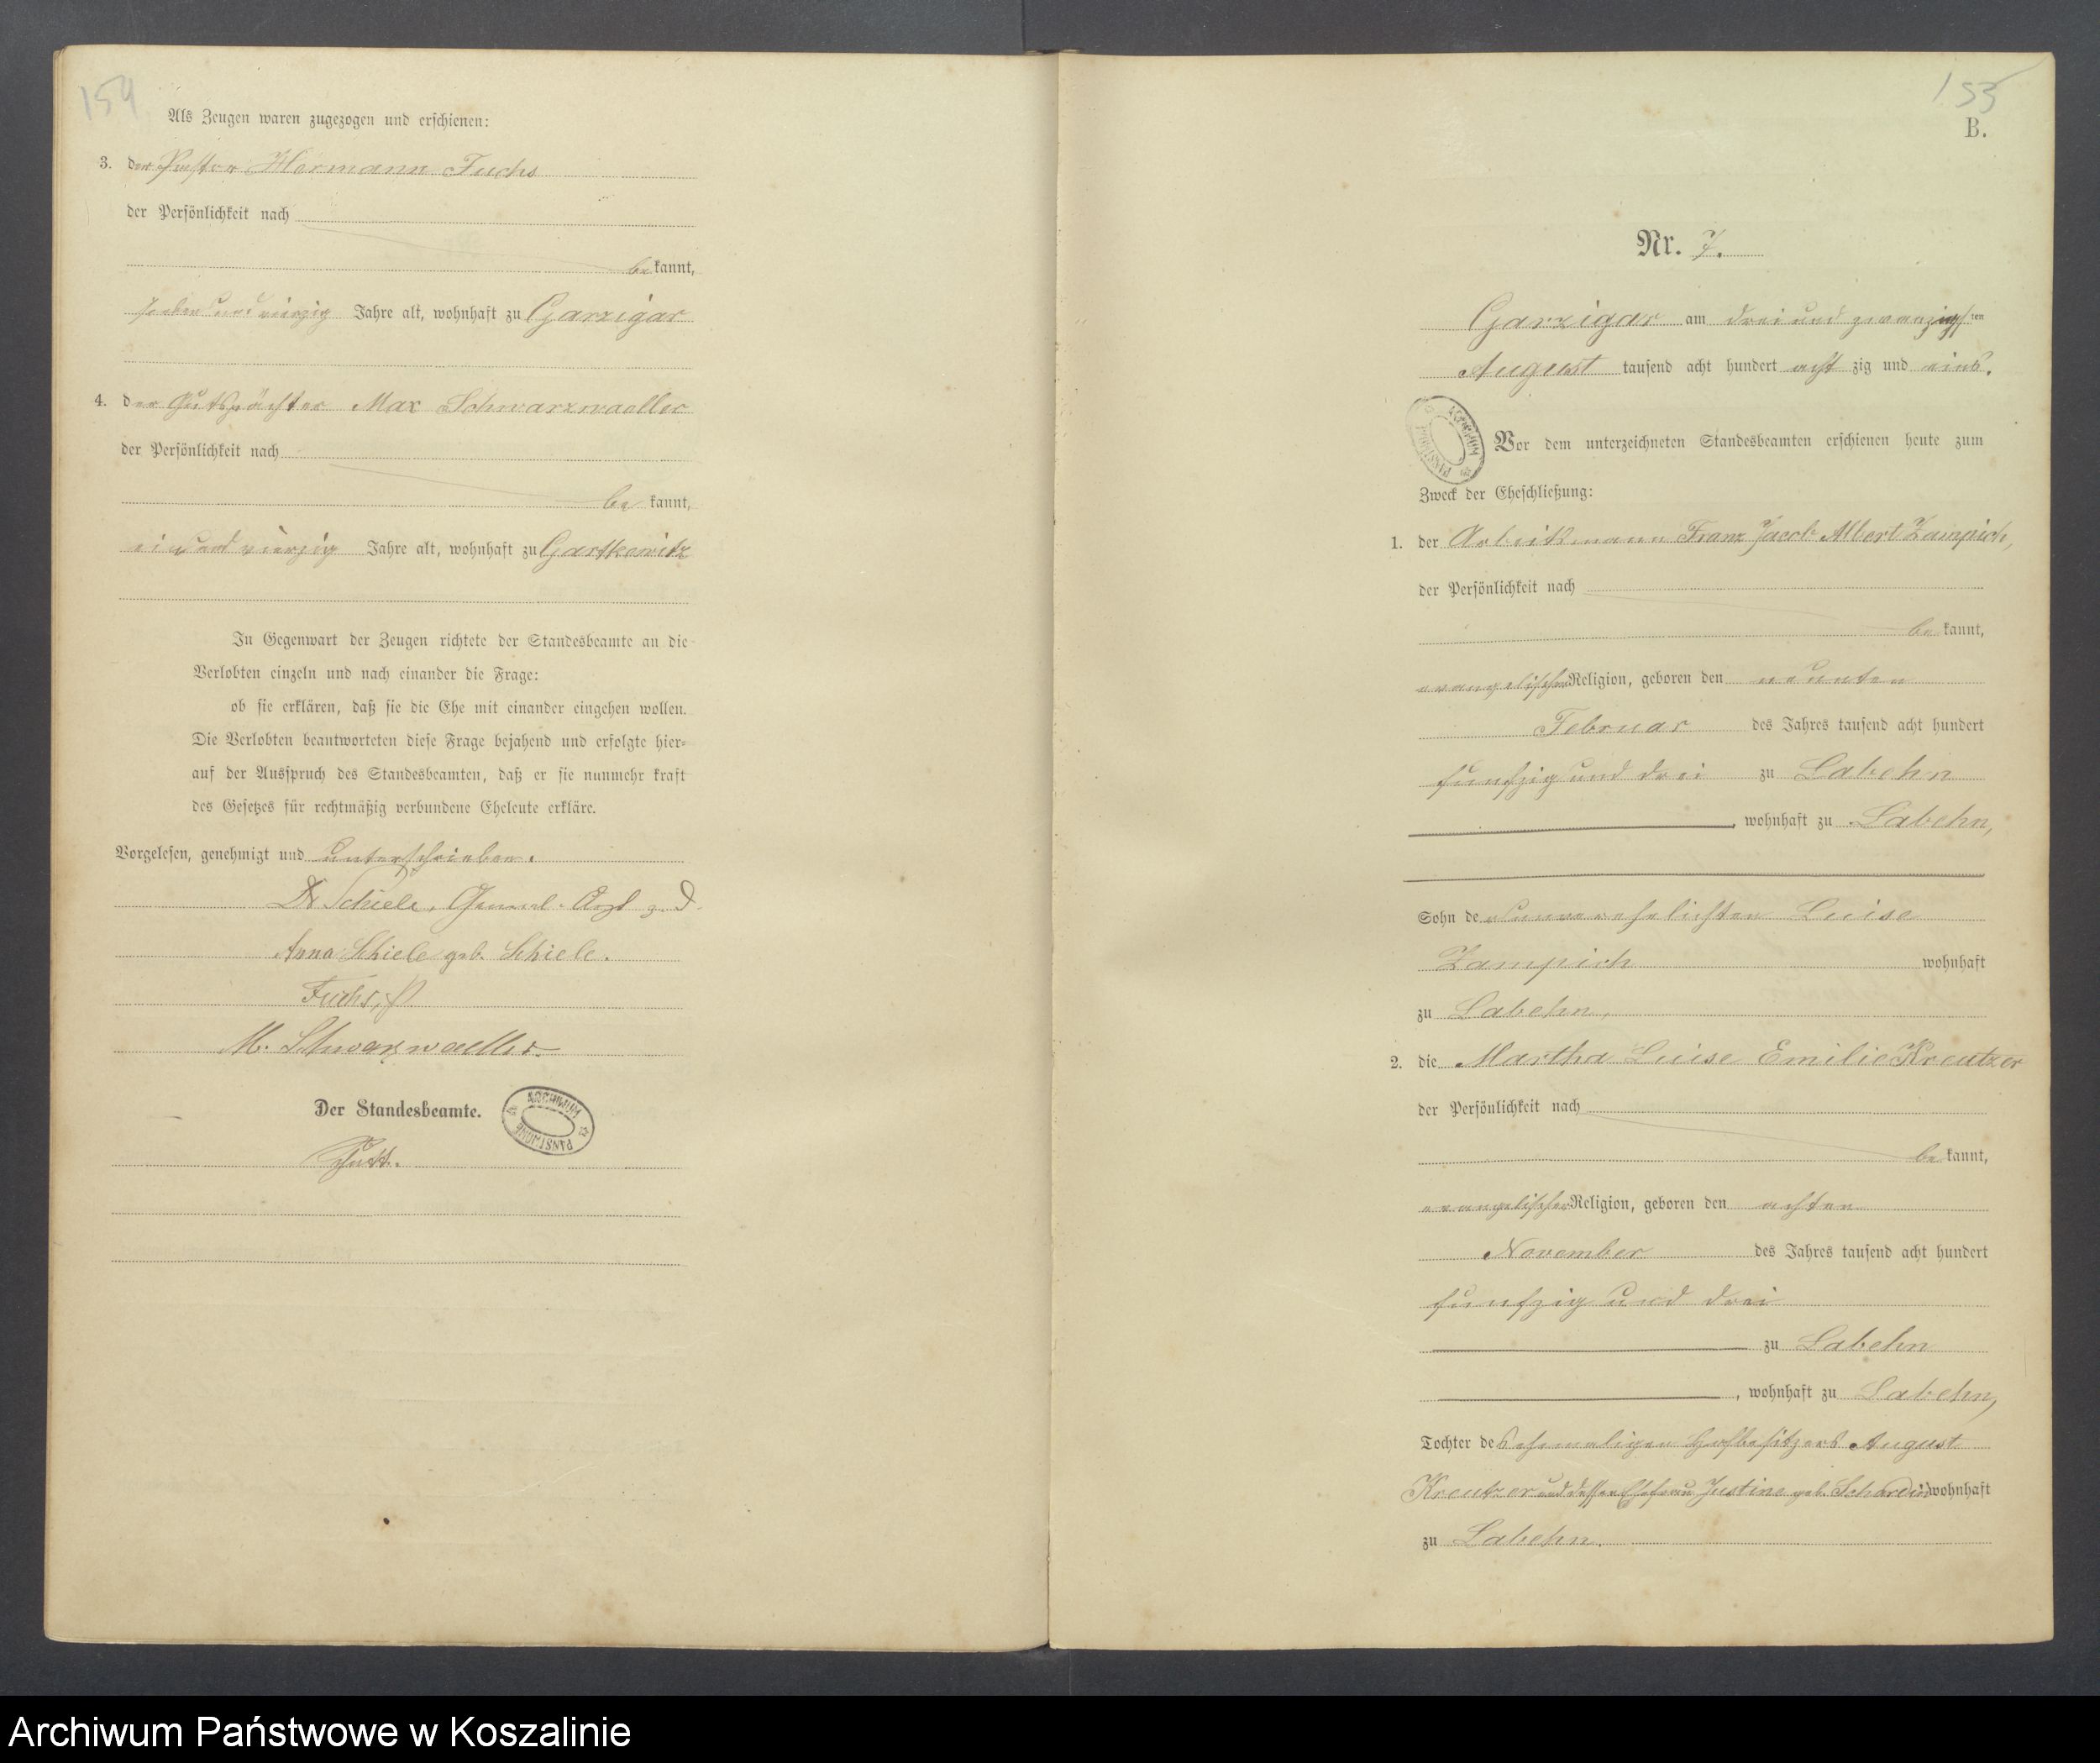 154
Als Zeugen waren zugezogen und erschienen:
3. der Pastor Hermann Fuchs
der Persönlichkeit nach
be kannt,
sieben und vierzig Jahre alt, wohnhaft zu Garzigar
4. der Gutspächter Max Schwarzwaeller
der Persönlichkeit nach
be kannt,
ein und vierzig Jahre alt, wohnhaft zu Gartkewitz
In Gegenwart der Zeugen richtete der Standesbeamte an die
Verlobten einzeln und nach einander die Frage:
ob sie erklären, daß sie die Ehe mit einander eingehen wollen.
Die Verlobten beantworteten diese Frage bejahend und erfolgte hier=
auf der Ausspruch des Standesbeamten, daß er sie nunmehr kraft
des Gesetzes für rechtmäßig verbundene Eheleute erkläre.
Vorgelesen, genehmigt und unterschrieben.
Dr Schiele, General-Arzt z. D.
Anna Schiele geb. Schiele.
Fuchs, P
M. Schwarzwaeller.
Der Standesbeamte.
ARCHIWUM PAŃSTWOWE
155
B.
Nr. 7.
Garzigar am drei und zwanzigsten
August tausend acht hundert acht zig und eins.
ARCHIWUM PAŃSTWOWE
Vor dem unterzeichneten Standesbeamten erschienen heute zum
Zweck der Eheschließung:
1. der Arbeitsmann Franz Jacob Albert Zampich,
der Persönlichkeit nach
be kannt,
evangelischer Religion, geboren den neunten
Februar des Jahres tausend acht hundert
funfzig und drei zu Labehn
, wohnhaft zu Labehn,
Sohn der unverehelichten Luise
Zampich wohnhaft
zu Labehn,
2. die Martha Luise Emilie Kreutzer
der Persönlichkeit nach
be kannt,
evangelischer Religion, geboren den achten
November des Jahres tausend acht hundert
funfzig und drei
zu Labehn
, wohnhaft zu Labehn,
Tochter des ehemaligen Hofbesitzers August
Kreutzer und dessen Ehefrau Justine geb. Schardin wohnhaft
zu Labehn.
Archiwum Państwowe w Koszalinie